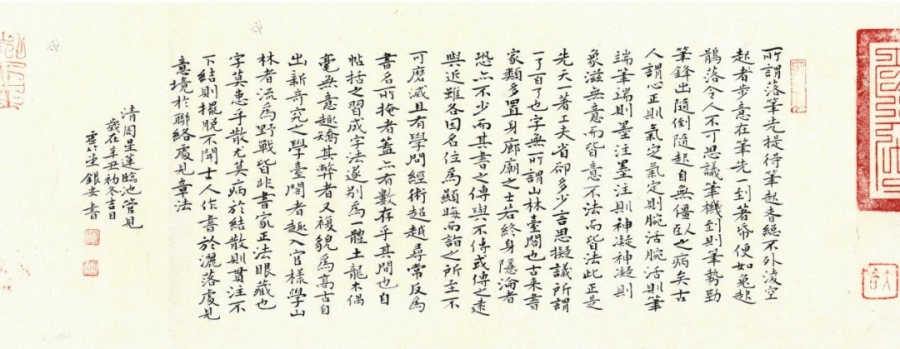 所謂落筆先提得筆起者總不外淩空
起者步意在筆先一到著帋便如兔起
鶻落令人不可思議筆機到則筆勢勁
筆鋒出隨倒隨起自無僵臥之病矣古
人謂心正則氣定氣定則腕活腕活則筆
端筆端則墨注墨注則神凝神凝則
象滋無意而皆意不法而皆法此正是
先天一著工夫省卻多少言思擬議所謂
一了百了也字無所謂山林臺閣也古來書
家類多置身廊廟之士若終身隱淪者
恐亦不少而其書之傳與不傳或傳之遠
與近雖各因名位為顯晦而詣之所至不
可磨滅且有學問經術超越尋常反為
書名所掩者蓋亦有數存乎其間也自
帖括之習成字法遂別為一體土龍木偶
毫無意趣矯其弊者又複貌為高古自
出新奇究之學臺閣者趨入官樣學山
林者流為野戰皆非書家正法眼藏也
字莫患乎散尤莫病於結散則貫注不
下結則擺脫不開士人作書於灑落處見
意境於聯絡處見章法
清周星蓮臨池管見
歲在辛丑初冬吉日
堂銀安書